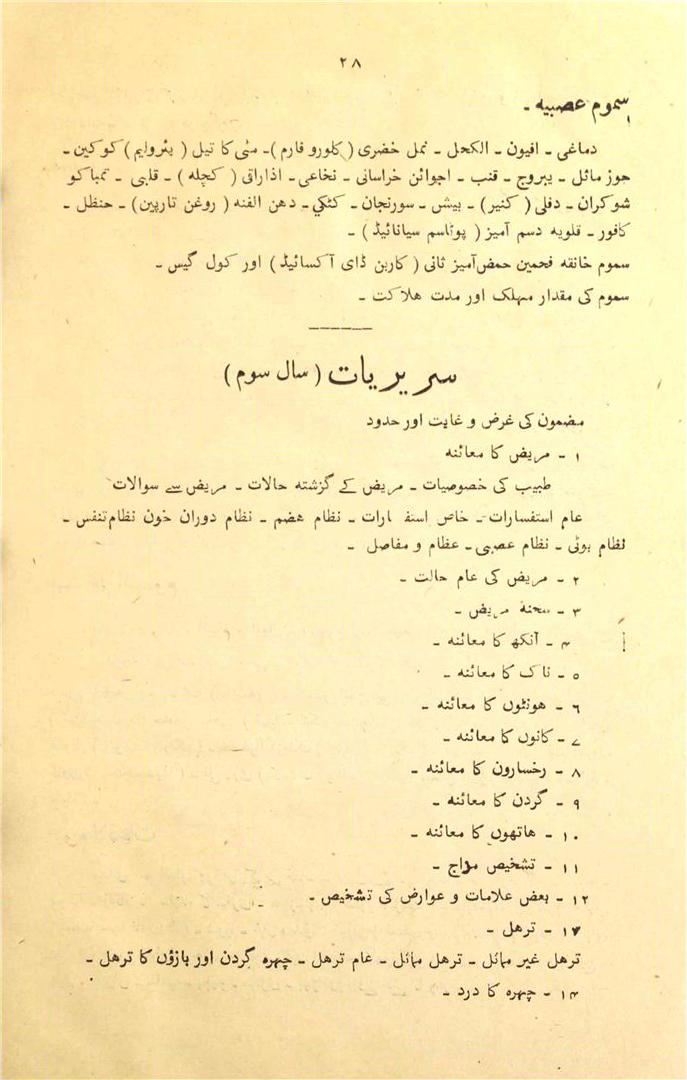 ۲۸
سموم عصبیہ ۔
دماغی ۔ افیون ۔ الکحل ۔ نمل خضری ( کلورو فارم )۔ مٹی کا تیل ( پٹرولیم ) کوکین ۔
جوز مائل ۔ یبروج ۔ قنب ۔ اجوائن خراسانی ۔ نخاعی ۔ اذاراقی ( کچلہ ) ۔ قلبی ۔ تمباکو
شوکران ۔ دفلی ( کنیر ) ۔ بیش ۔ سورنجان ۔ کٹکی ۔ دهن الفنه ( روغن تارپین ) ۔ حنظل ۔
کافور ۔ قلویہ دسم آمیز ( پوٹاسم سیانائیڈ ) ۔
سموم خانقہ فحمین حمض آمیز ثانی ( کاربن ڈای آکسائیڈ ) اور کول گیس ۔
سموم کی مقدار مہلک اور مدت ھلاکت ۔
سریریات ( سال سوم )
مضمون کی غرض و غایت اور حدود
۱ ۔ مریض کا معائنہ
طبیب کی خصوصیات ۔ مریض کے گزشتہ حالات ۔ مریض سے سوالات
عام استفسارات ۔ خاص استفسارات ۔ نظام ھضم ۔ نظام دوران خون نظام تنفس ۔
نظام بولی ۔ نظام عصبی ۔ عظام و مفاصل ۔
۲ ۔ مریض کی عام حالت ۔
۳ ۔ سحنہ مریض ۔
۴ ۔ آنکھ کا معائنہ ۔
۵ ۔ ناک کا معائنہ ۔
۶ ۔ ھونٹوں کا معائنہ ۔
۷ ۔ کانوں کا معائنہ ۔
۸ ۔ رخسارون کا معائنہ ۔
۹ ۔ گردن کا معائنہ ۔
۱۰ ۔ ھاتھوں کا معائنہ ۔
۱۱ ۔ تشخیص مزاج ۔
۱۲ ۔ بعض علامات و عوارض کی تشخیص ۔
۱۳ ۔ ترھل ۔
ترھل غیر مائل ۔ ترھل مائل ۔ عام ترھل ۔ چہرہ گردن اور بازؤں کا ترھل ۔
۱۴ ۔ چہرہ کا درد ۔